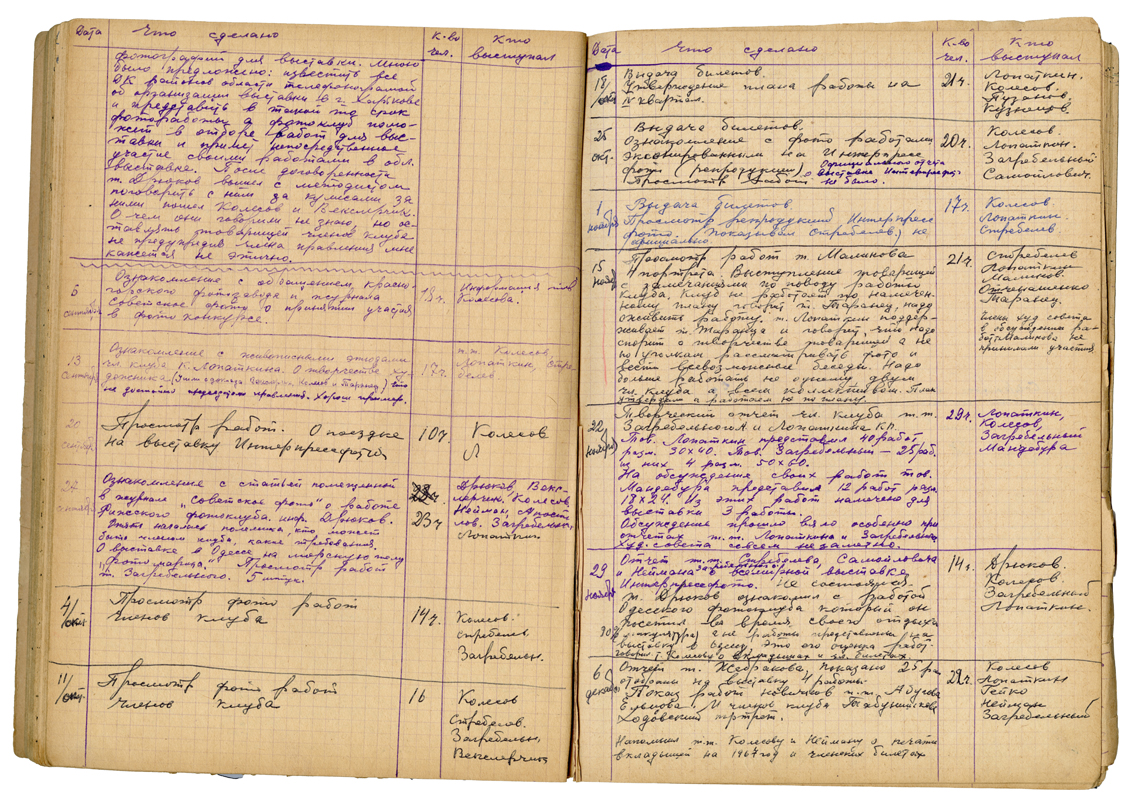 Дата Что сделано К-во чел. Кто выступал
фотографий для выставки. Много
было предложено: известить все
ДК районов области телефонограмой
об организации выставки в г. Харькове
и представить в такой то срок
фотоработы а фотоклуб помо-
жет в отборе работ для выс-
тавки и примет непосредственное
участие своими работами в обл.
выставке. После договоренности
т. Дрюков вышел с методистом
поговорить с ним за кулисами за
ними пошел Колесов и Векслерчик.
О чем они говорили не знаю но ос-
тавлять товарищей членов клуба
не предупредив члена правления мне
кажется не этично.
6 сентябр Ознакомление с обращением красно-
горского фотозавода и журнала
советское фото о принятии участия
в фото конкурсе. 18ч. Информация тов
Колесова.
13 сентябр Ознакомление с живописными этюдами
чл. клуба К. Лопаткина. О творчестве ху-
дожника 17ч. т.т. Колесов
Лопаткин, Стре-
белев
не достойно
20 сентябр Просмотр работ. О поездке
на выставку Интерпрессфото 10ч. Колесов
Л
27 сентябр Ознакомление с статьей помещенной
в журнале "Советское фото" о работе
Рижского фотоклуба. инф. Дрюков.
кто может
быть членом клуба, какие требования.
О выставке в Одессе на морскую тему
Просмотр работ
т. Загребельного. 5 штук. 23ч Дрюков Векс-
лерчик, Колесов
Нейман,
Загребельн,
Лопаткин.
4/окт. Просмотр фото работ
членов клуба 14ч. Колесов.
Стребелев
Загребельн.
11/окт. Просмотр фото работ
членов клуба 16 Колесов
Стребелев.
Загребельн,
Векслерчик
Дата Что сделано К-во чел. Кто выступал
18/окт Выдача билетов.
Утверждение плана работы на
IV квартал. 21ч. Лопаткин.
Колесов.
Лузанов
Кузнецов
25 окт. Выдача билетов.
Ознакомление с фото работами
экспонированным на Интерпресс
фото (репродукции) Официального отчета
о выставке Интерпресс.
Просмотр работ не было. 20ч. Колесов.
Лопаткин.
Загребельный
Самойлович.
1 ноября Выдача билетов
Просмотр репродукций Интерпресс
фото. (показывал Стребелев.) не
официально. 17ч. Колесов
Лопаткин.
Стребелев.
15 нояб Просмотр работ т. Маликова
4 портрета. Выступление товарищей
с замечаниями по поводу работы
клуба, Клуб не работает по намечен-
ному плану говорит т. Таранец, надо
оживить работу. т. Лопаткин поддер-
живает т. Таранца и говорит, что надо
спорить о творчестве товарищей а не
по уголкам рассматривать фото и
вести всевозможные беседы. Надо
больше работать не одному двум
чл. клуба а всем коллективом. План
утвердили а работаем не по плану. 21ч. Стребелев
Лопаткин
Маликов.
Таранец.
Члены худ совета
в обсуждении ра-
бот Маликова не
принимали участия
22 ноября Творческий отчет чл. клуба т.т.
Загребельного и Лопаткина К.П.
Тов. Лопаткин представил 40 работ
разм. 30х40. Тов. Загребельный - 25 раб.
из них 4 разм. 50х60.
На обсуждение своих работ тов.
Мандебура представил 12 работ разм.
18х24. Из этих работ намечено для
выставки 3 работы.
Обсуждение прошло вяло особенно при
отчетах т.т. Лопаткина и Загребельн.
Худ. совета совсем незаметно. 29ч. Лопаткин,
Колесов,
Загребельный
Мандебура
29 ноября Отчет т.т. Стребелева, Самойловича
и Неймана о всемирной выставке
Интерпрессфото. Не состоялся.
т. Дрюков ознакомил с работой
Одесского фотоклуба который он
посетил во время своего отпуска
выставку в Одессу. Это его оценка работ
говорил т. Колесов о вкладышах и чл. билетах 14ч. Дрюков.
Колесов.
Загребельный
Лопаткин.
6 декабр Отчет т. Жебракова, показано 25 ра
отобраны на выставку 4 работы.
Показ работ новичков т.т. Абусова
Ельцова, и членов клуба
Ходовский портрет.
Напомнил т.т. Колесову и Нейману о печати
вкладышей на 1967 год и членских билетах 22ч. Колесов
Лопаткин
Гейко
Нейман
Загребельный